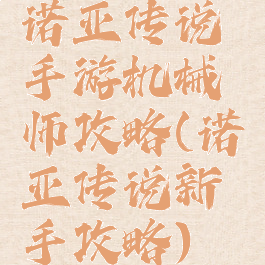 诺亚传说
手游机械
师攻略(诺
亚传说新
手攻略)